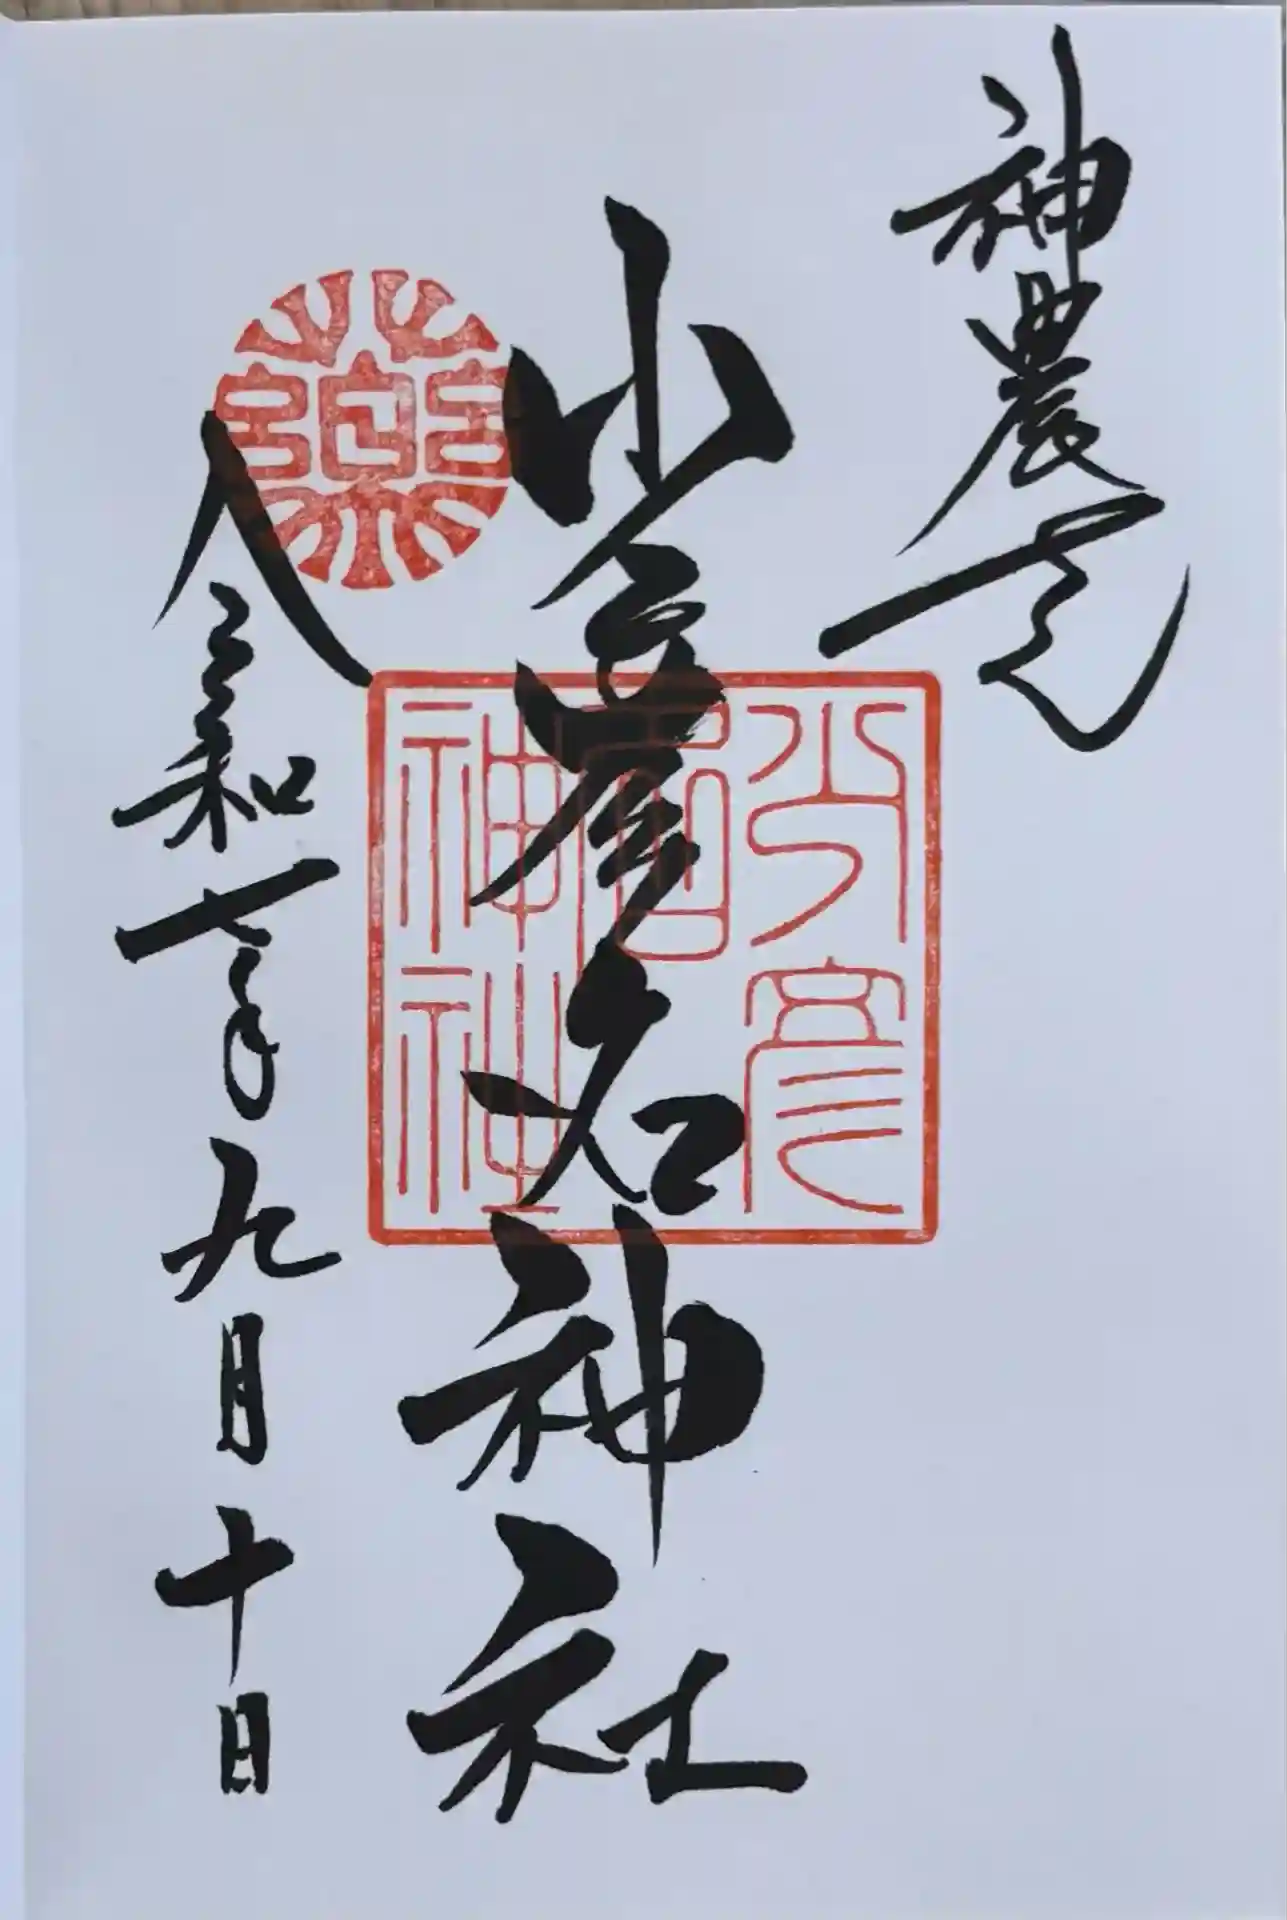 神農さん
少彦名神社
少彦名神社
薬
令和七年九月十日